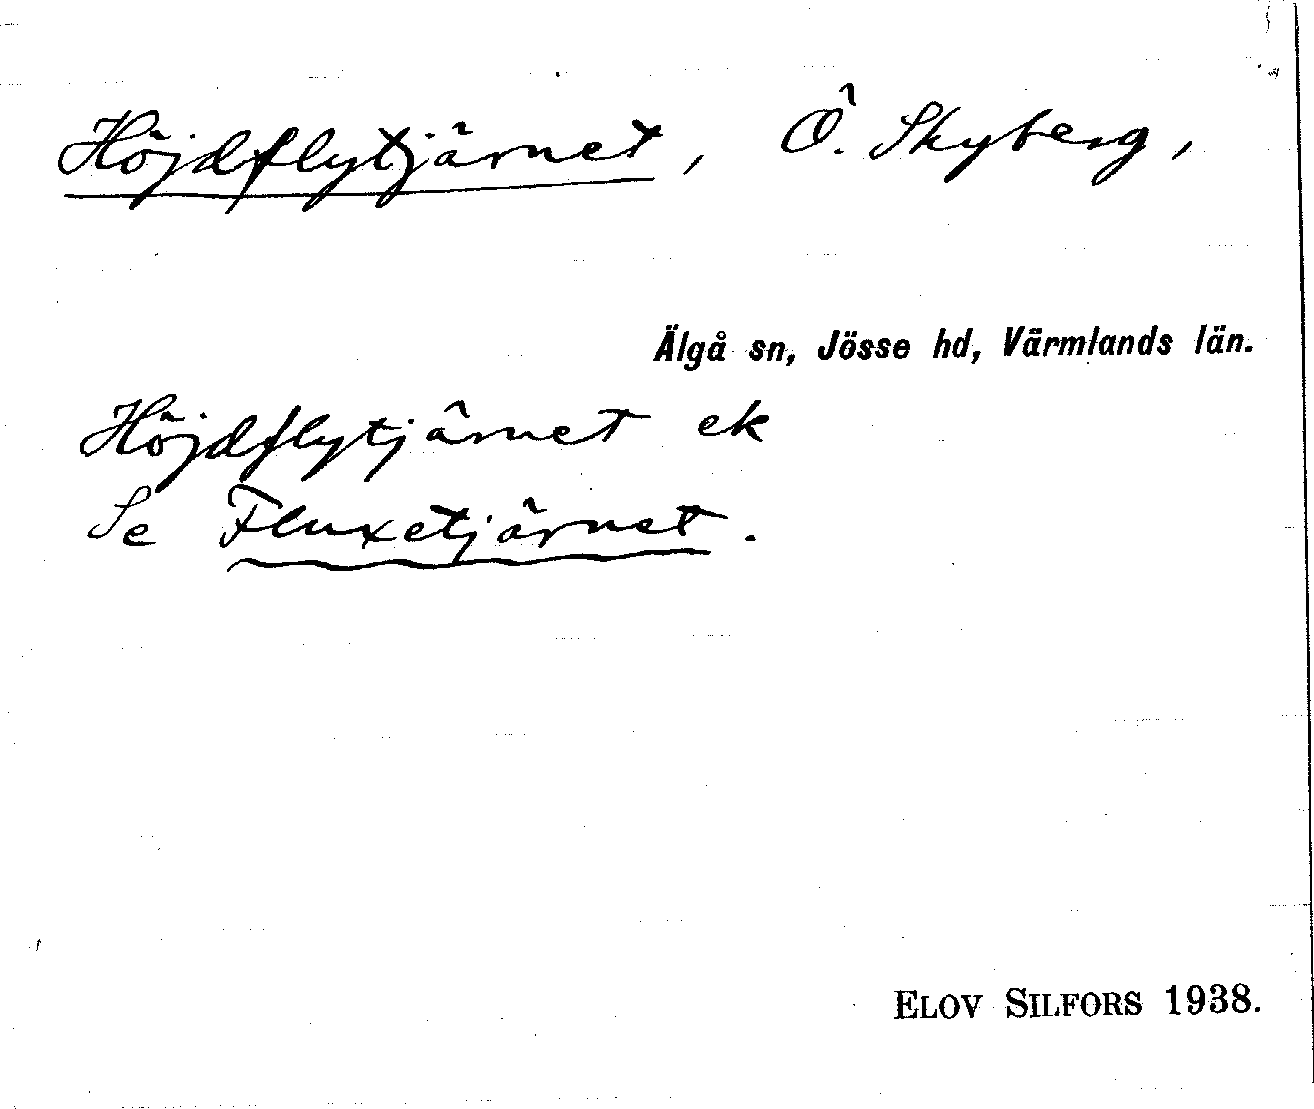 Höjdflytjärnet, Ö. Skyberg,
Älgå sn, Jösse hd, Värmlands län.
Höjdflytjärnet ek
Se Fluxetjärnet.
ELOV SILFORS 1938.